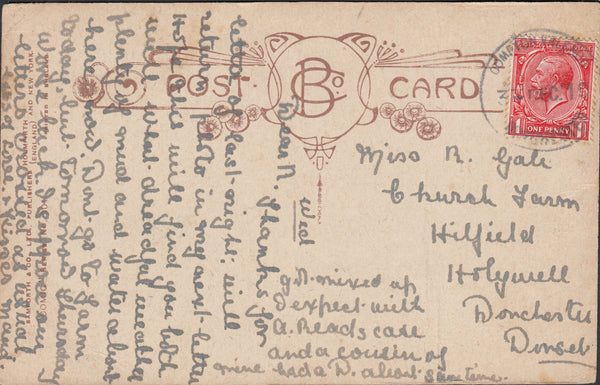 POST CARD
B Co
ONE PENNY
Miss R. Gale
Church Farm
Hilfield
Holywell
Dorchester
Dorset
Wed
Dear N. Thanks for
letter of last night. will
return photo in my next letter
Hope this will find you both
well. What dreadful weather
plenty of mud and water about
here now. Dont go to Farm
today, but tomorrow Thursday
letter posted as usual
best love & kisses Maud.
got mixed up
I expect with
A. Reads case
and a cousin of
mine had a D. about same time.
BAMFORTH & CO., LTD., PUBLISHERS, HOLMFIRTH (ENGLAND) AND NEW YORK